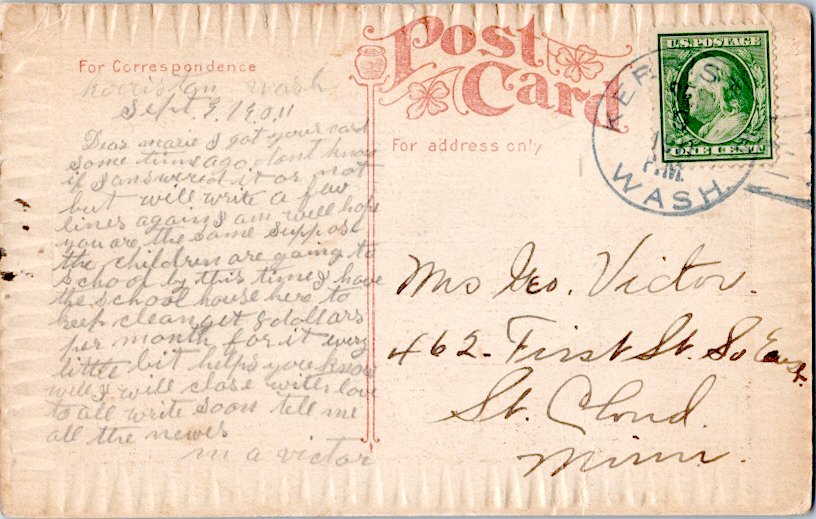 Post Card
For Correspondence
For address only
U.S. POSTAGE
ONE CENT
KER
WASH.
P.M.
Kerriston Wash
Sept 9, 1911
Dear marie I got your card
some time ago dont know
if I answered it or not
but will write a few
lines again I am well hope
you are the same suppose
the children are going to
school by this time I have
the school house here to
keep clean get 8 dollars
per month for it every
little bit helps you know
well I will close with love
to all write soon tell me
all the newes
m a victor
Mrs Geo. Victor.
462 - First St. So East.
St. Cloud.
Minn.